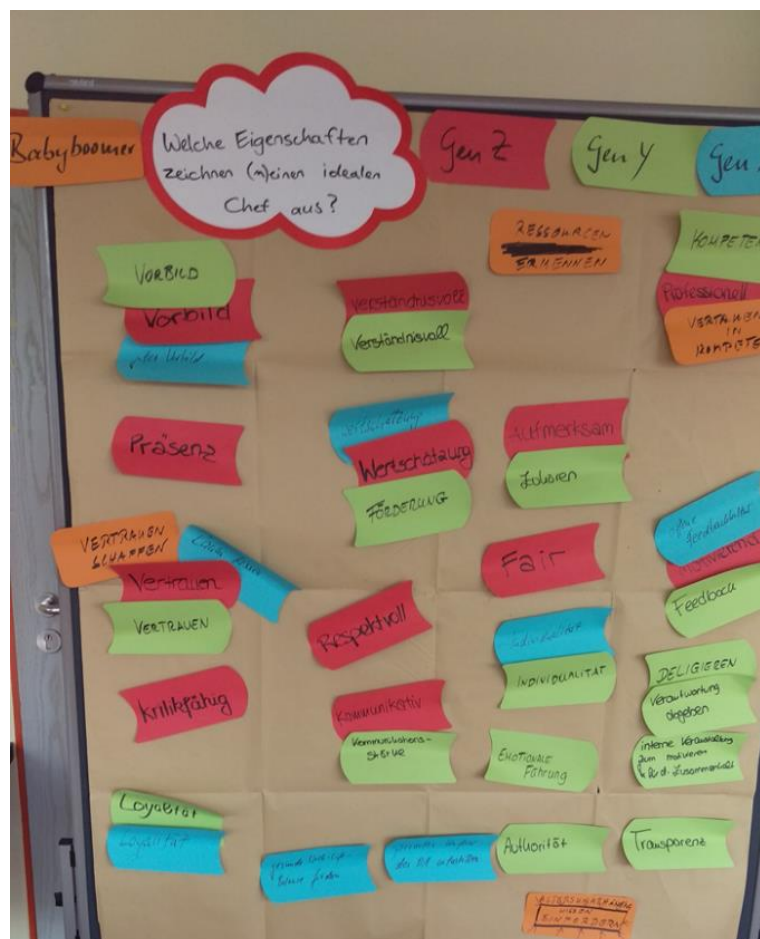 Babyboomer
Welche Eigenschaften
zeichnen (m)einen idealen
Chef aus?
Gen Z
Gen Y
Gen
RESSOURCEN
ERKENNEN
KOMPETEN
VORBILD
Vorbild
Verständnisvoll
Verständnisvoll
Professionell
VERTRAUEN
IN
KOMPETE
Präsenz
Wertschätzung
Wertschätzung
FÖRDERUNG
Aufmerksam
Zuhören
VERTRAUEN
SCHAFFEN
Vertrauen
VERTRAUEN
Fair
Feedback
Respektvoll
Individualität
INDIVIDUALITÄT
DELIGIEREN
Verantwortung
abgeben
Kritikfähig
Kommunikativ
Kommunikations-
stärke
EMOTIONALE
Führung
interne Veranstaltung
zum motivieren
für d. Zusammenhalt
Loyalität
Loyalität
Authorität
Transparenz
EINFORDERN